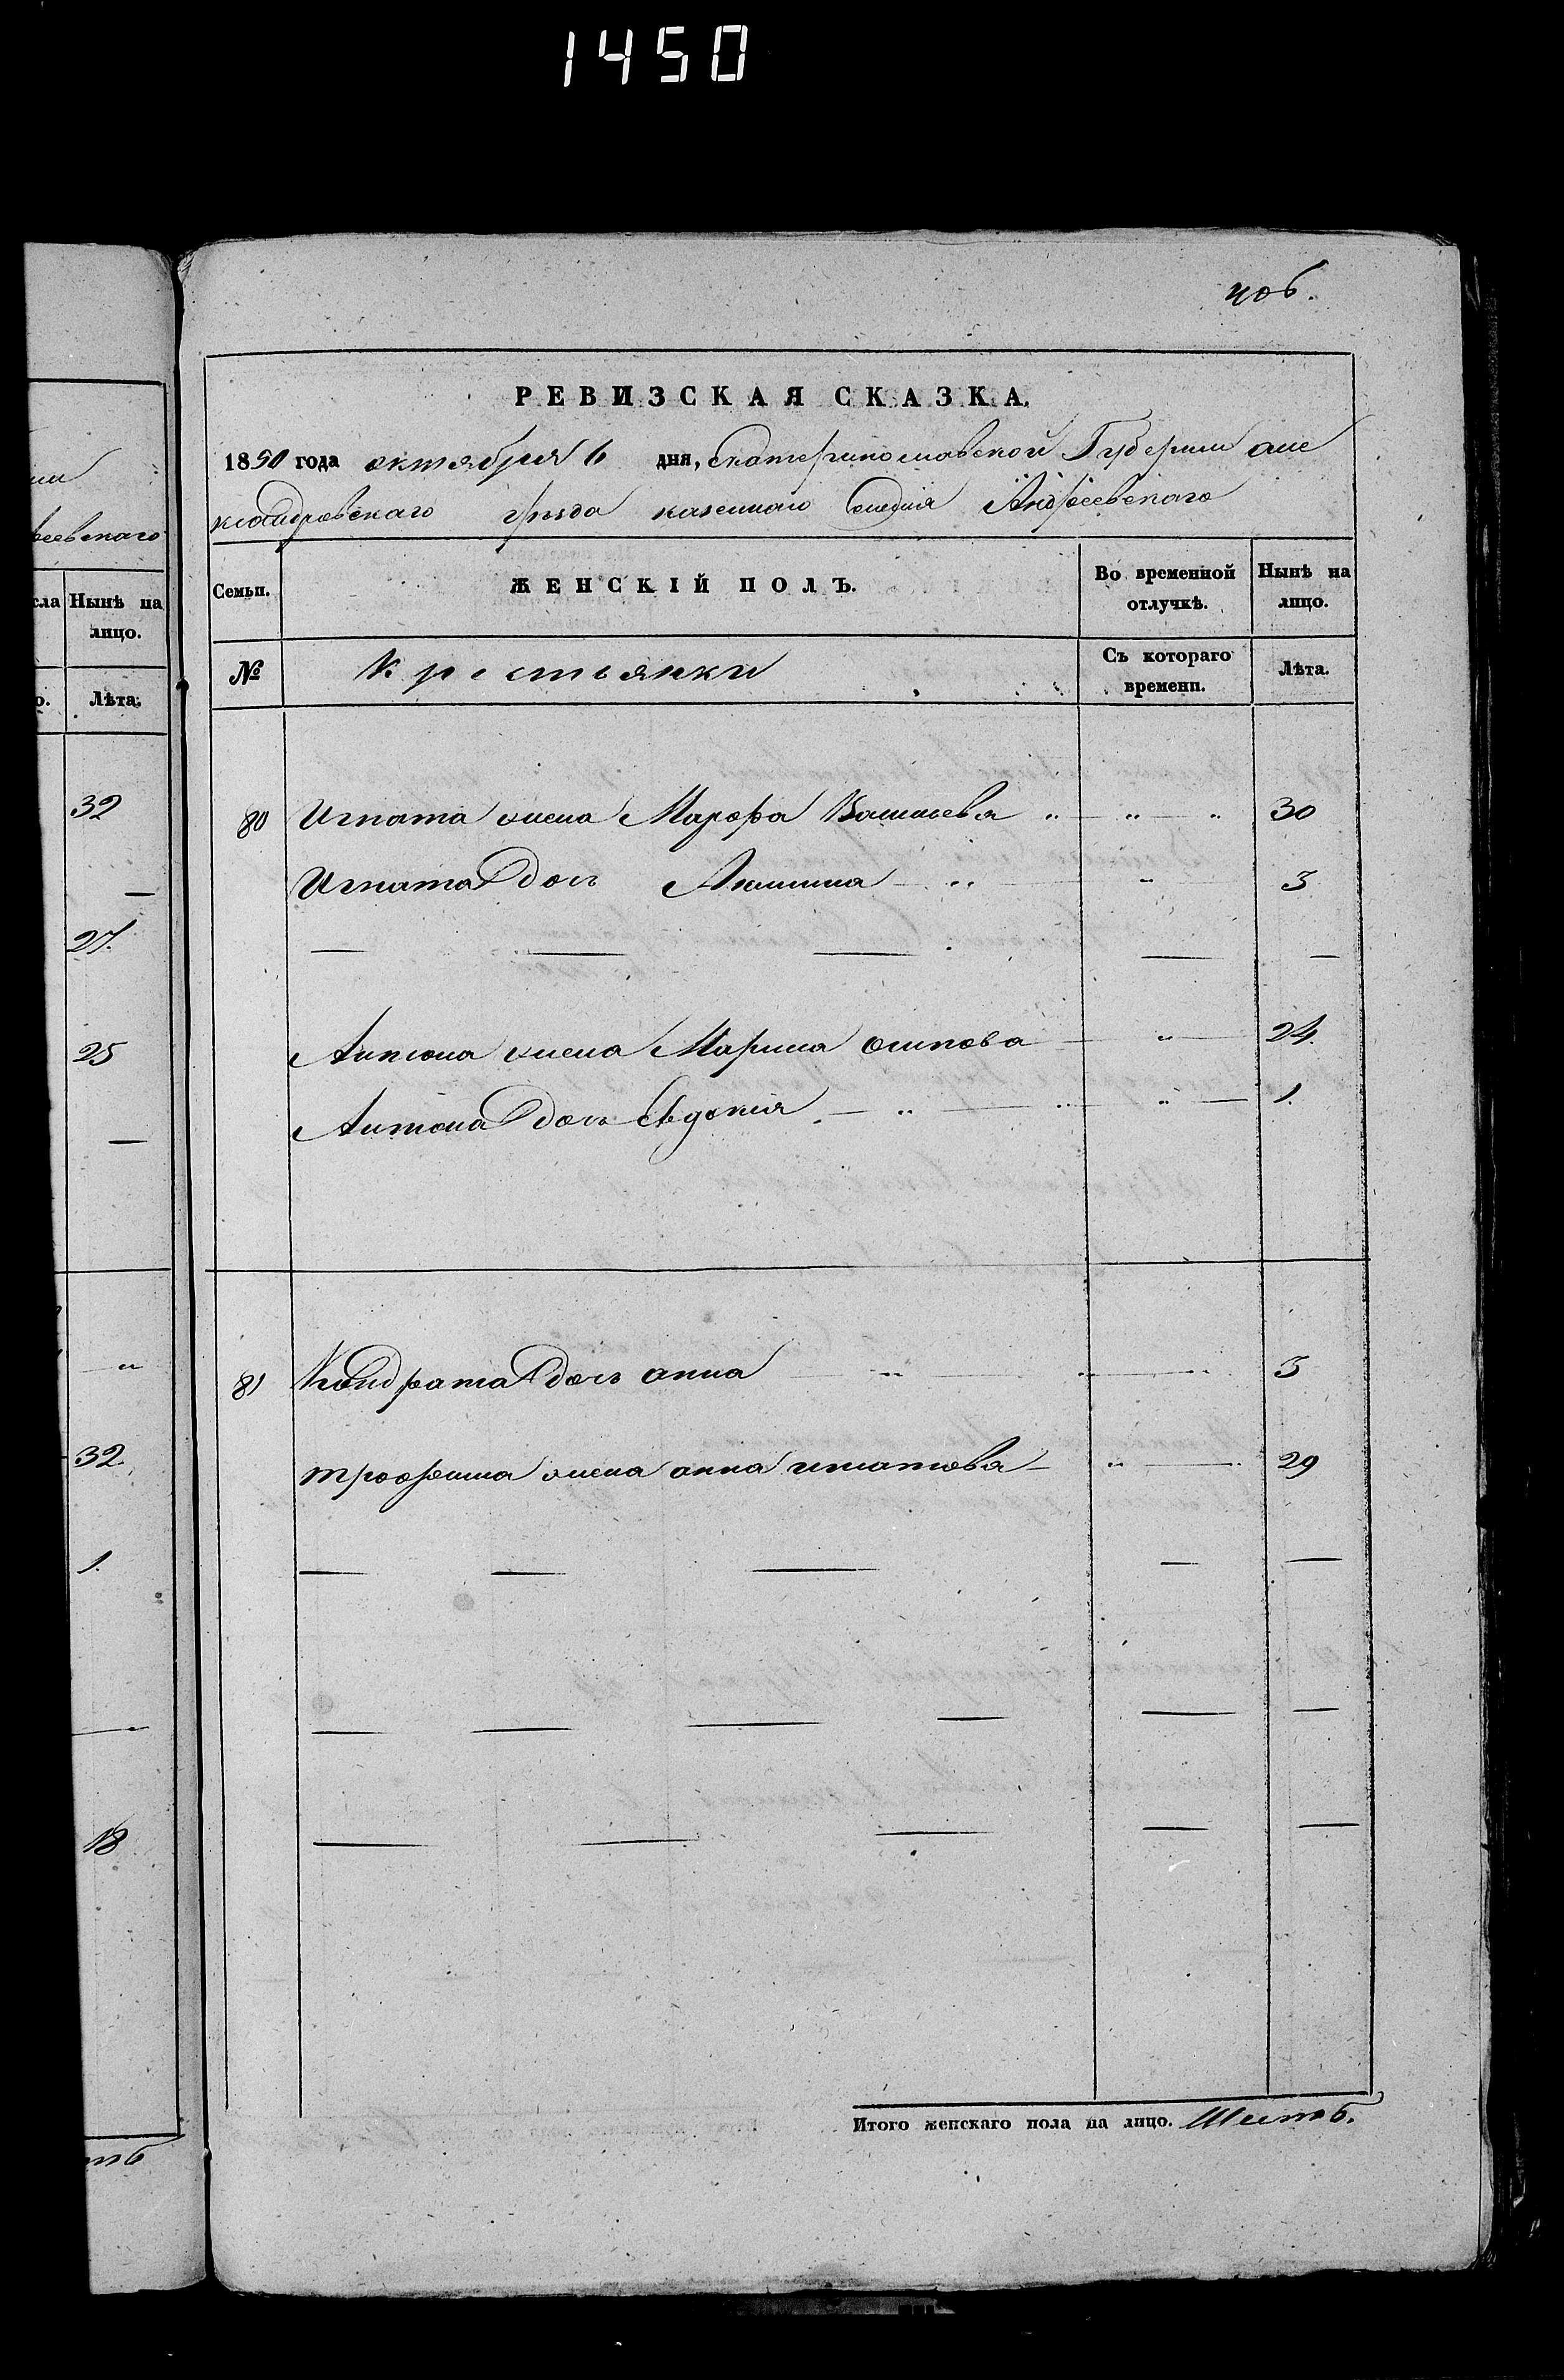 1450
406.
ни
реевскаго
сла Нынѣ на
лицо.
о. Лѣта.
32
—
27.
25
—
"
32.
1.
—
18
РЕВИЗСКАЯ СКАЗКА.
1850 года октября 6 дня, Екатеринославской Губернии але
ксандровскаго уѣзда казеннаго селения Андреевскаго
Семьи. ЖЕНСКІЙ ПОЛЪ. Во временной отлучкѣ. Нынѣ на лицо.
№ Крестьянки Съ котораго времени. Лѣта.
80 Игната жена Марфа Васильева " " " 30
Игната дочь " " 3
— — — — —
Антона жена Марина осипова " 24.
Антона дочь Евдокия — " — " — 1.
81 Кондрата дочь анна " 3
трофима жена анна игнатова — " — 29
— — — — —
— — — — — —
— — — — —
Итого женскаго пола на лицо. Шесть.